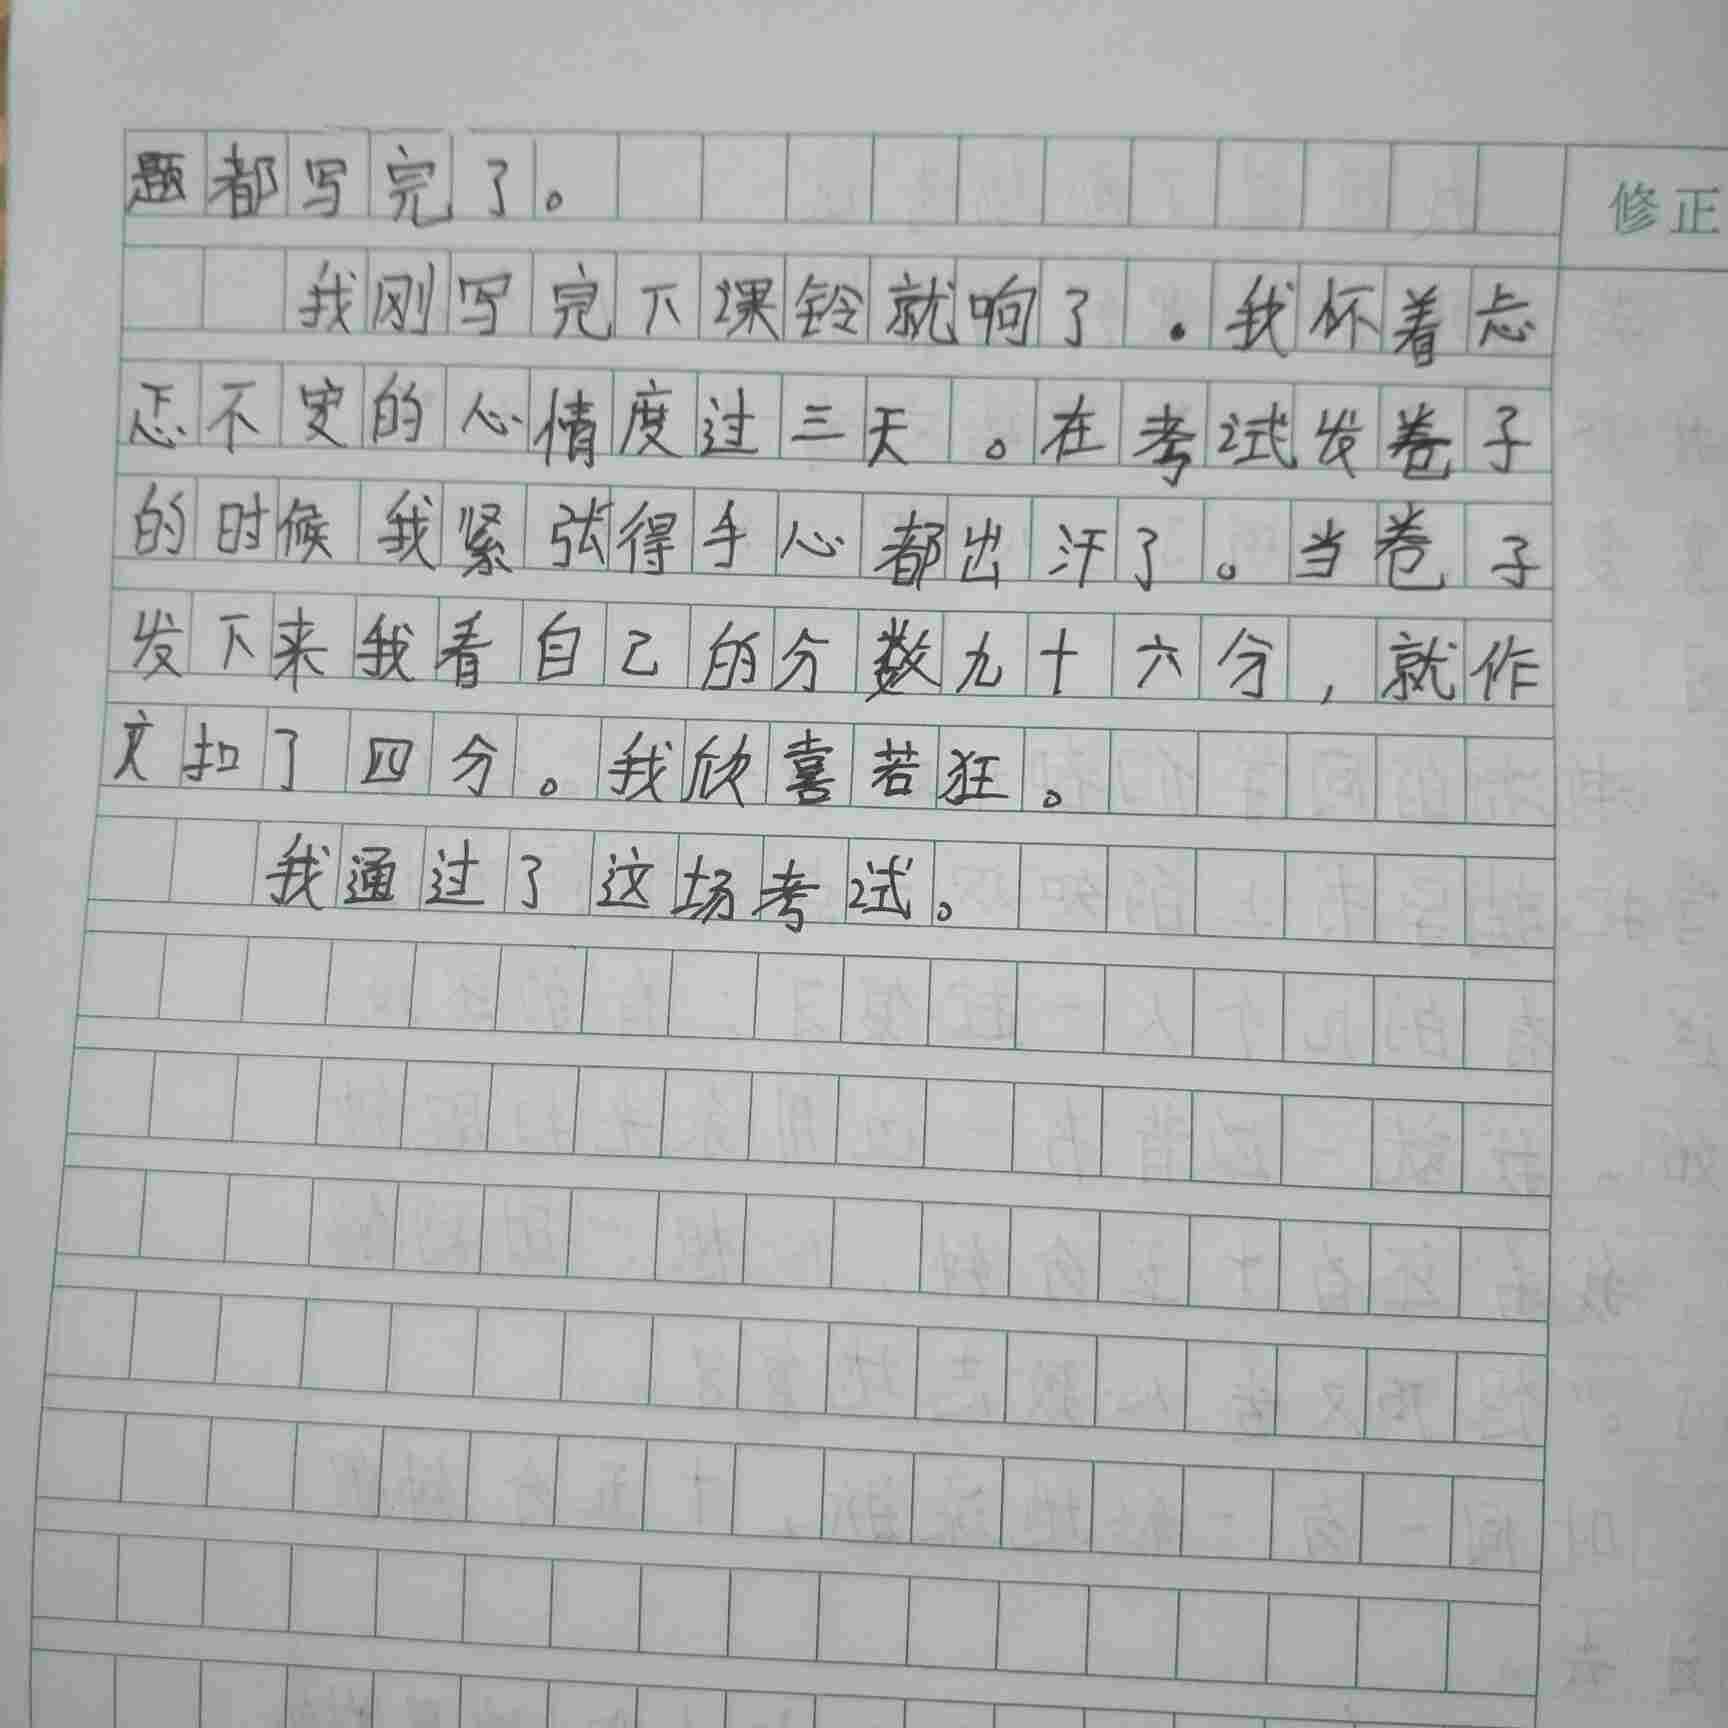 题都写完了。
修正
我刚写完下课铃就响了.我怀着忐
忑不安的心情度过三天。在考试发卷子
的时候我紧张得手心都出汗了。当卷子
发下来我看自己的分数九十六分,就作
文扣了四分。我欣喜若狂。
我通过了这场考试。